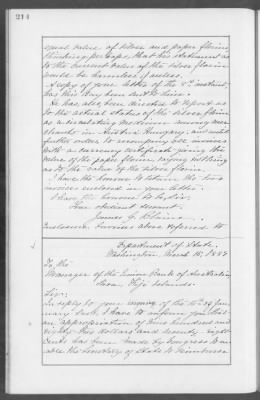 214
equal value of silver and paper florins,
thinking perhaps, that his statement as
to the current value of the silver florin
would be harmless surplus.
A copy of your letter of the 5th instant,
has this day been sent to him.
He has also been directed to report as
to the actual status of the silver florin
as a circulating medium among mer-
chants in Austria Hungary; and until
further orders to accompany all invoices
with a currency certificate giving the
value of the paper florin saying nothing
as to the value of the silver florin.
I have the honor to return the two
invoices enclosed in your letter.
I have the honor to be, Sir,
Your obedient servant,
James G. Blaine.
Enclosures: Invoices above referred to
Department of State,
Washington, March 15,
To the
Manager of the Union Bank of Australia,
Suva, Fiji Islands.
Sir:
In reply to your inquiry of the of Jan-
uary last, I have to inform you that
an appropriation of One hundred and
eighty two dollars and seventy eight
cents has been made by Congress to en-
able the Secretary of State to reimburse